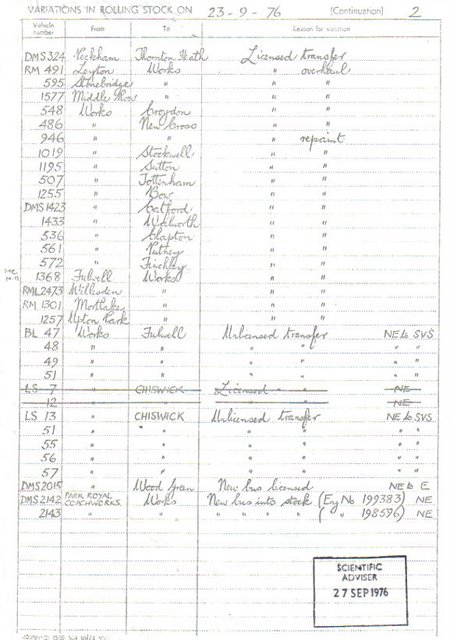 VARIATIONS IN ROLLING STOCK ON 23-9-76 (Continuation) 2
Vehicle number From To Reason for variation
DMS 324 Peckham Thornton Heath Licensed transfer
RM 491 Leyton Works " overhaul
595 Stonebridge " " "
1577 Middle Row " " "
548 Works Croydon " "
486 " New Cross " "
946 " " " repaint
1019 " Stockwell " "
1195 " Sutton " "
507 " Tottenham " "
1255 " Bow " "
DMS 1423 " Catford " "
1433 " Walworth " "
536 " Clapton " "
561 " Putney " "
572 " Finchley " "
1368 Fulwell Works " "
RML 2473 Willesden " " "
RM 1301 Mortlake " " "
1257 Upton Park " " "
BL 47 Works Fulwell Unlicensed transfer NE to SVS
48 " " " " " "
49 " " " " " "
51 " " " " " "
LS 7 " CHISWICK Licensed " NE
12 " " " " NE
LS 13 " CHISWICK Unlicensed transfer NE to SVS
51 " " " " " "
55 " " " " " "
56 " " " " " "
57 " " " " " "
DMS 2015 " Wood Green New bus licensed NE to E
DMS 2142 PARK ROYAL COACHWORKS. Works New bus into stock (Eng No 199383) NE
2143 " " " " " " ( " 198596) NE
SCIENTIFIC
ADVISER
27 SEP 1976